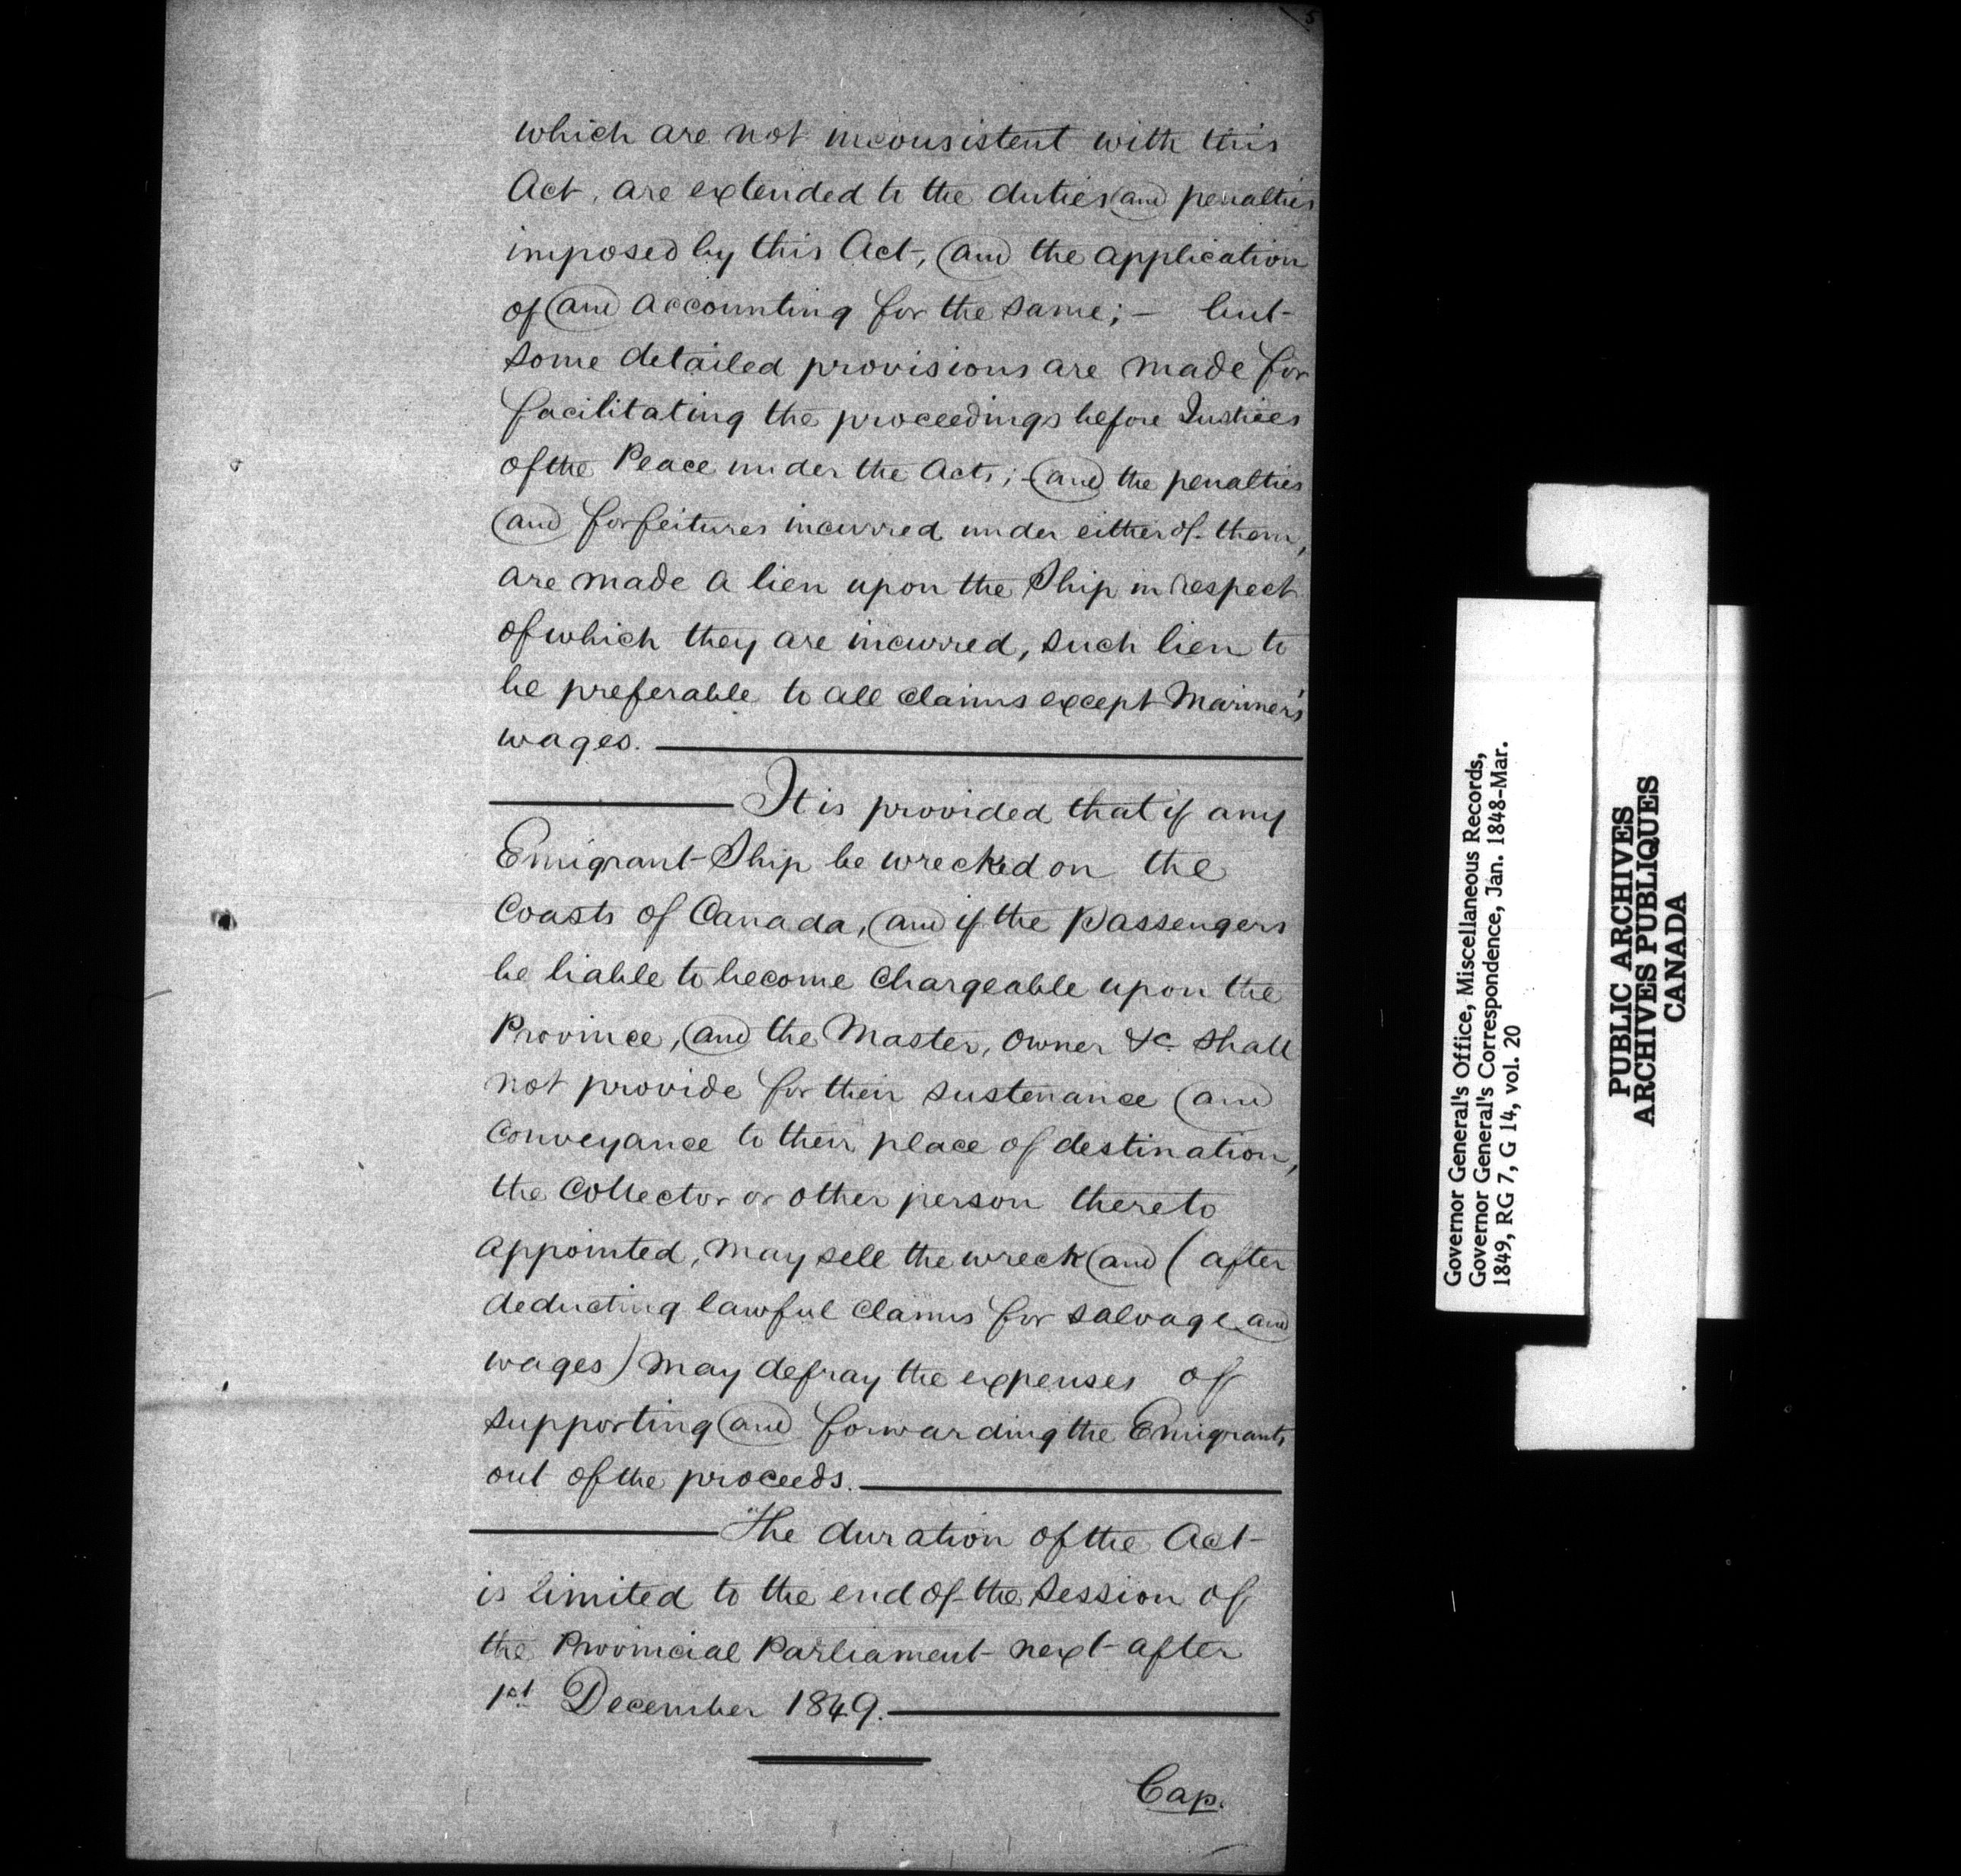 5
which are not inconsistent with this
Act, are extended to the duties and penalties
imposed by this Act, and the application
of and accounting for the same; — but
some detailed provisions are made for
facilitating the proceedings before Justices
of the Peace under the Acts; - and the penalties
and forfeitures incurred under either of them,
are made a lien upon the Ship in respect
of which they are incurred, such lien to
be preferable to all claims except Mariner's
wages.
It is provided that if any
Emigrant Ship be wrecked on the
Coasts of Canada, and if the passengers
be liable to become chargeable upon the
Province, and the Master, Owner &c shall
not provide for their sustenance and
conveyance to their place of destination,
the Collector or other person thereto
appointed, may sell the wreck and (after
deducting lawful claims for salvage and
wages) may defray the expenses of
supporting and forwarding the Emigrants
out of the proceeds.
The duration of the Act
is limited to the end of the Session of
the Provincial Parliament next after
1st December 1849.
Cap.
Governor General's Office, Miscellaneous Records,
Governor General's Correspondence, Jan. 1848-Mar.
1849, RG 7, G 14, vol. 20
PUBLIC ARCHIVES
ARCHIVES PUBLIQUES
CANADA